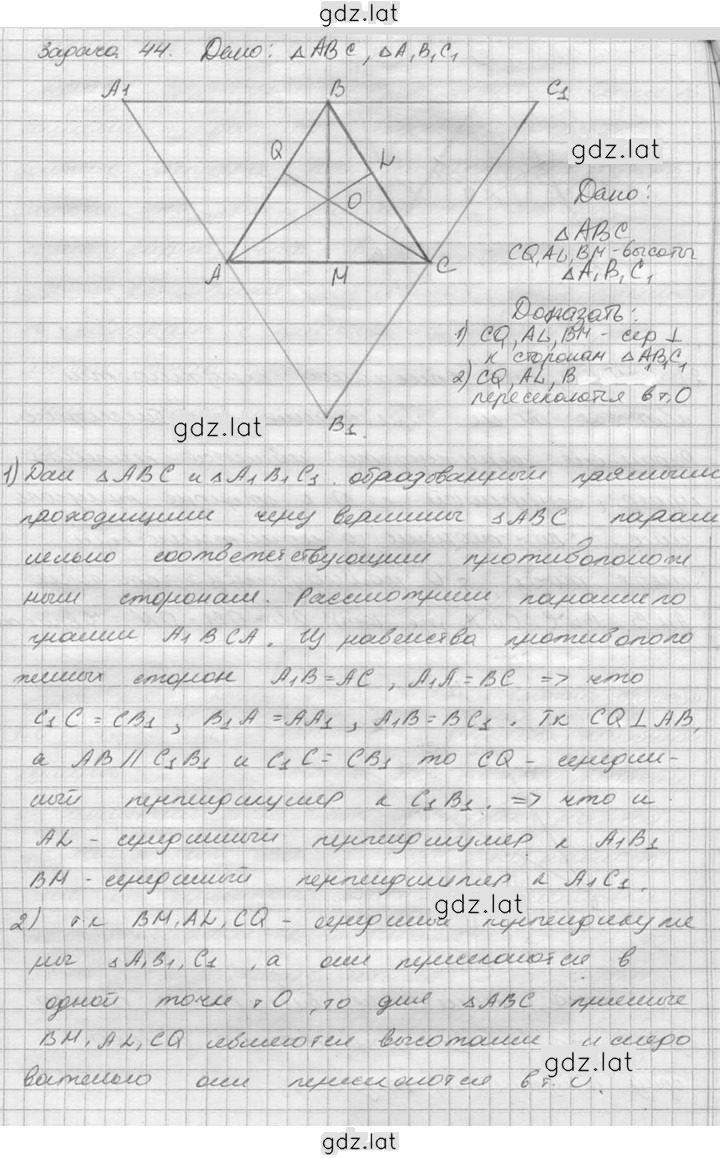 gdz.lat
Задача 44. Дано: △ABC, △A₁B₁C₁
A1 B C1
Q L
gdz.lat
O
Дано:
△ABC
CQ, AL, BM - высоты
△A₁B₁C₁
A M C
Доказать:
1) CQ, AL, BM - сер ⊥
к сторонам △A₁B₁C₁
2) CQ, AL, B
пересекаются в т. O
gdz.lat
B1
1) Дан △ABC и △A1B1C1, образованный прямыми
проходящими через вершины △ABC парал
лельно соответствующим противополож
ным сторонам. Рассмотрим параллело
грамм A1BCA. Из равенства противополо
жных сторон A1B=AC, A1A=BC => что
C1C=CB1, B1A=AA1, A1B=BC1. Тк CQ⊥AB,
а AB//C1B1 и C1C=CB1 то CQ - середин-
ный перпендикуляр к C1B1. => что и
AL - серединный перпендикуляр к A1B1
BM - серединный перпендикуляр к A1C1.
gdz.lat
2) тк BM, AL, CQ - серединые перпендикуля
ры △A₁B₁,C₁, а они пересекаются в
одной точке т O, то для △ABC прямые
BM, AL, CQ являются высотами и следо
gdz.lat
вательно они пересекаются в т. O.
gdz.lat